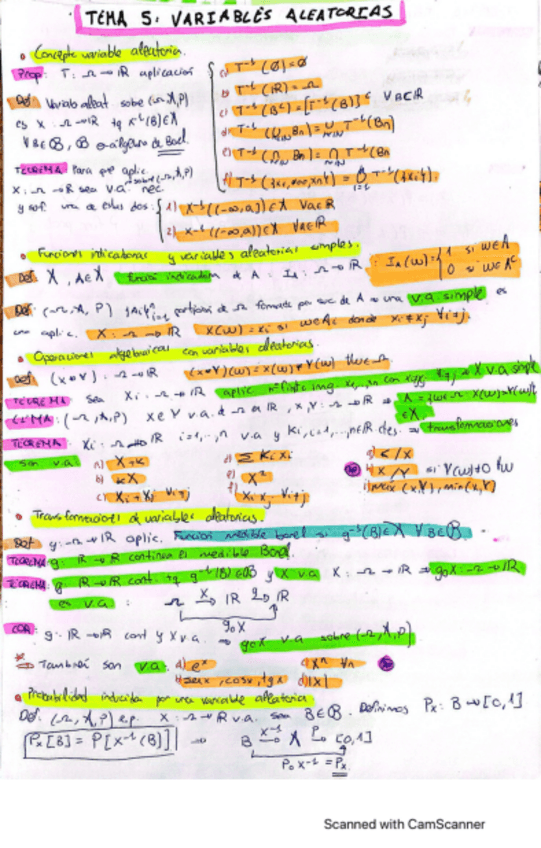 TEMA 5: VARIABLES ALEATORIAS
• Concepto variable aleatoria.
Prop: T: Ω → IR aplicación
a) T⁻¹(∅)=∅
b) T⁻¹(IR)=Ω
c) T⁻¹(Bᶜ)=[T⁻¹(B)]ᶜ ∀B⊂IR
Def: Variab aleat. sobre (Ω,A,P)
es X: Ω→IR tq X⁻¹(B)∈A
∀B∈B, B σ-álgebra de Borel.
TEOREMA: Para que aplic
X: Ω→R sea v.a. sobre (Ω,A,P) nec
y suf una de estas dos:
1) X⁻¹((-∞,a])∈A ∀a∈IR
2) X⁻¹((-∞,a))∈A ∀a∈IR
• Funciones indicadoras y variables aleatorias simples.
Def: A, A∈A función indicadora de A: I_A: Ω→IR: I_A(w)={1 si w∈A
0 si w∈Aᶜ
Def: (Ω,A,P) partición de Ω formada por suc de A una v.a. simple es
una aplic. X: Ω→IR X(w)=xi si w∈Ai donde xi≠xj ∀i≠j.
• Operaciones algebraicas con variables aleatorias.
Def (X*Y): Ω→IR (X*Y)(w)=X(w)*Y(w) ∀w∈Ω.
TEOREMA Sea Xi: Ω→IR aplic nº finito img. v.a. simple
LEMA: (Ω,A,P) X e Y v.a. X,Y: Ω→IR ⇒ A={w∈Ω: X(w)=Y(w)}
∈A.
TEOREMA Xi: Ω→IR i=1,..,n v.a y Ki, i=1,..,n∈IR ⇒ transformaciones
son v.a:
a) X+K
d) Σ Ki Xi
g) K/X
b) KX
e) X²
h) X/Y si Y(w)≠0 ∀w
c) Xi+Xj ∀i≠j
f) Xi Xj ∀i≠j
i) max(X,Y), min(X,Y)
• Transformaciones de variables aleatorias.
Def g: Ω→IR aplic. Función medible borel si g⁻¹(B)∈A ∀B∈B.
TEOREMA g: IR→IR continua es medible Borel.
TEOREMA g: IR→IR cont. tq g⁻¹(B)∈B y X v.a X: Ω→IR ⇒ goX: Ω→IR
es v.a: Ω X→ IR g→ IR
goX
COR: g: IR→IR cont y X v.a. ⇒ goX v.a sobre (Ω,A,P)
* ⇒ También son v.a: a) eˣ c) Xⁿ ∀n
b) senx, cosx, tgx d) |X|
• Probabilidad inducida por una variable aleatoria
Def: (Ω,A,P) e.p. X: Ω→R v.a. sea B∈B. Definimos Px: B→[0,1]
Px[B] = P[X⁻¹(B)] → B X⁻¹→ A P→ [0,1]
P o X⁻¹ = Px
Scanned with CamScanner